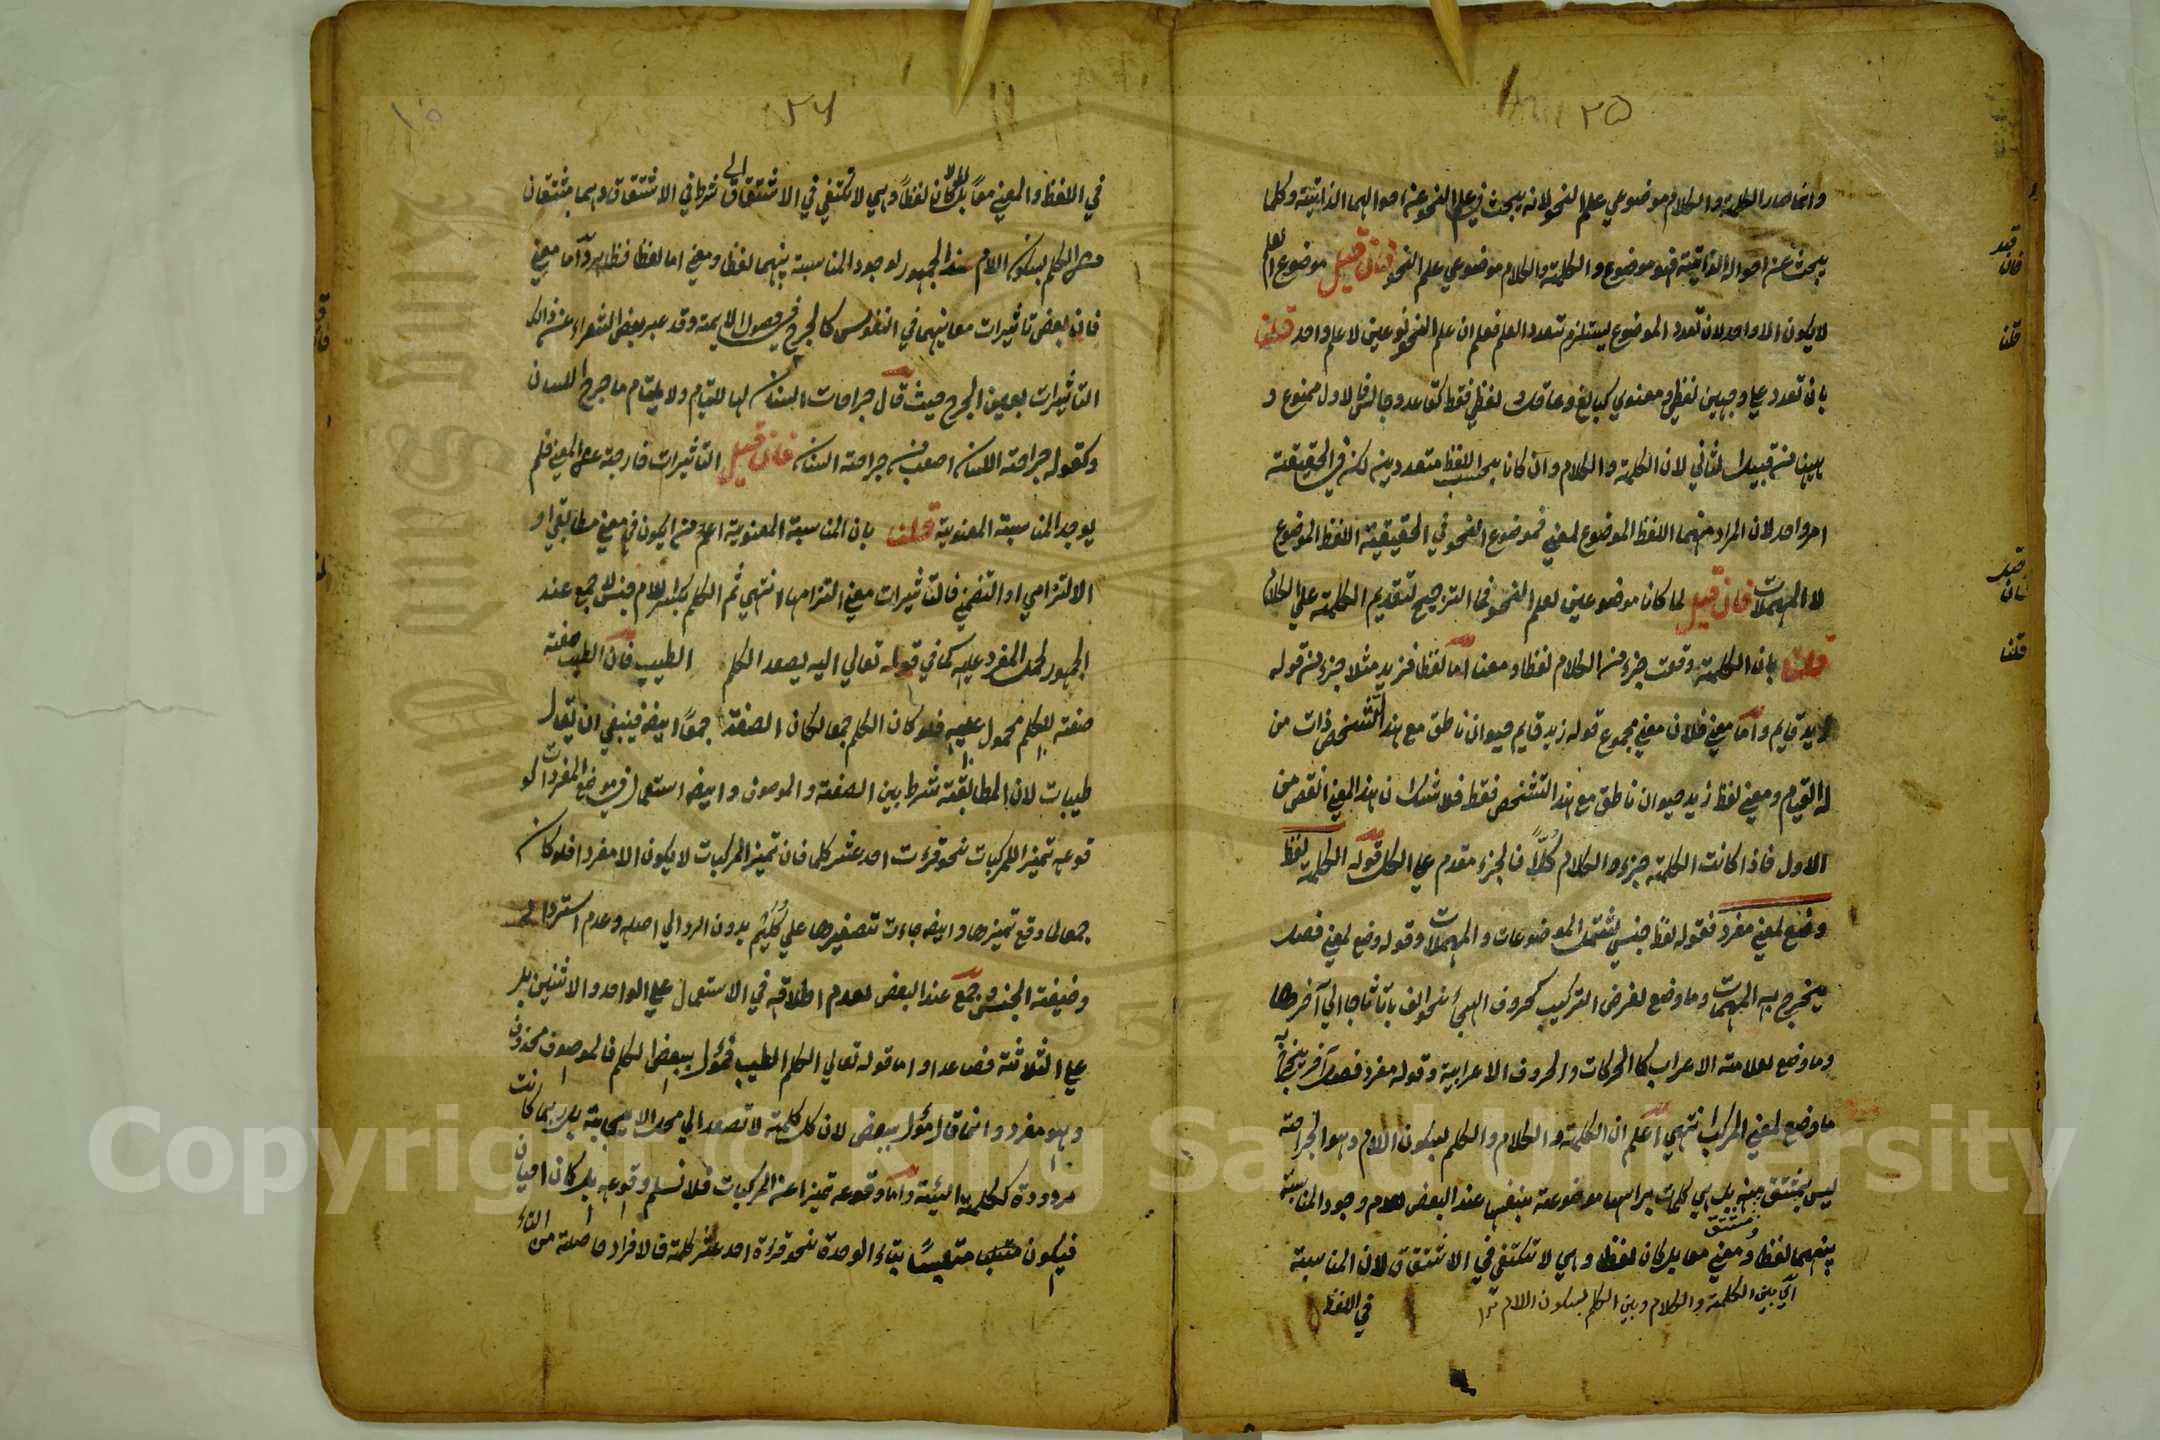 ٢٥
وانما صار الكلمة والكلام موضوعي علم النحو لانه يبحث في علم النحو عن احوالهما الذاتية وكلما
يبحث عن احواله الذاتية فهو موضوع والكلمة والكلام موضوعي علم النحو فان قيل موضوع العلم
لا يكون الا واحد لان تعدد الموضوع يستلزم تعدد العلم فعلم ان علم النحو نوعين لا علم واحد قلنا
بان تعدد علي وجهين لفظي ومعنوي كبالغ وعاقل ولفظي فقط كقاعد وجالس فالاول ممنوع و
ههنا من قبيل الثاني لان الكلمة والكلام وان كانا بحسب اللفظ متعددين لكن في الحقيقة
امر واحد لان المراد منهما اللفظ الموضوع لمعني فموضوع النحو في الحقيقة اللفظ الموضوع
لا المهملات فان قيل لما كانا موضوعين لعلم النحو فما الترجيح لتقديم الكلمة علي الكلام
قلنا بان الكلمة وقعت جزء من الكلام لفظا ومعنا اما لفظا فزيد مثلا جزء من قوله
زيد قايم واما معني فلان معني مجموع قوله زيد قايم حيوان ناطق مع هذا التشخص ذات من
له القيام ومعني لفظ زيد حيوان ناطق مع هذا التشخص فقط فلا شك ان هذا المعني انقص من
الاول فاذا كانت الكلمة جزء والكلام كلاً فالجزء مقدم علي الكل قوله الكلمة لفظ
وضع لمعني مفرد فقوله لفظ جنس يشتمل الموضوعات والمهملات وقوله وضع لمعني فصل
يخرج به المهملات وما وضع لغرض التركيب كحروف الهجاء نحو الف با تا ثا جا الي آخرها
وما وضع لعلامته الاعراب كالحركات والحروف الاعرابية وقوله مفرد فصل آخر يخرج به
ما وضع لمعني المركب انتهي اعلم ان الكلمة والكلام والكلم بسكون اللام وهو الجراحة
ليس بمشتق منه بل هي كلمات براسها موضوعة بنفسها عند البعض لعدم وجود المناسبة
ومشتق
بينهما لفظا ومعني معا بل كان لفظا وهي لا تكتفي في الاشتقاق لان المناسبة
اي بين الكلمة والكلام وبين الكلم بسكون اللام
في اللفظ
فان قيل
قلنا
فان قيل
قلنا
٢٦
في اللفظ والمعني معاً بل كان لفظاً وهي لا تكتفي في الاشتقاق شرط في الاشتقاق وهما مشتقان
من الكلم بسكون اللام عند الجمهور لوجود المناسبة بينهما لفظا ومعني اما لفظا فظاهر واما معني
فان بعض تاثيرات معانيهما في النفوس كالجرح في حصول الالم وقد عبر بعض الشعراء عن ذلك
التاثيرات بعين الجرح حيث قال جراحات السنان لها التيام ولا يلتام ما جرح اللسان
وكقوله جراحة اللسان اصعب من جراحة السنان فان قيل التاثيرات خارجة عن المعني فلم
يوجد المناسبة المعنوية قلنا بان المناسبة المعنوية اعم من ان يكون في معني مطابقي او
الالتزامي او التضمني فالتاثيرات معني التزامها انتهي ثم الكلم بكسر اللام جنس لا جمع عند
الجمهور لحمل المفرد عليه كما في قوله تعالي اليه يصعد الكلم الطيب فان الطيب صفة
صفة للكلم محمول عليه فلو كان الكلم جمعا لكان الصفة جمعاً ايضا فينبغي ان يقال
طيبات لان المطابقة شرط بين الصفة والموصوف وايضا استعمال في موضع المفردات لو
قوعه تميز المركبات نحو قرءت احد عشر كلما فان تميز المركبات لا يكون الا مفردا فلو كان
جمعا لما وقع تميزها وايضا جاءت تصغيرها علي كُلَيم بدون الرد الي اصله وعدم استرداله
وضيفة الجنس وجمع عند البعض لعدم اطلاقه في الاستعمال علي الواحد والاثنين بل
علي الثلاثة فصاعدا واما قوله تعالي الكلم الطيب فمؤل ببعض الكلم فالموصوف محذوف
وهو مفرد وانما قال مؤل ببعض لان كل كلمة لا تصعد الي محل الاجابة بل ربما كانت
مردودة ككلمة السيئة واما وقوعه تميزا عن المركبات فلا نسلم وقوعه بل كان احيان
فيكون متلبسا بتاء الوحدة نحو قرءة احد عشر كلمة فالافراد حاصلة من التاء
Copyright © King Saud University
1957